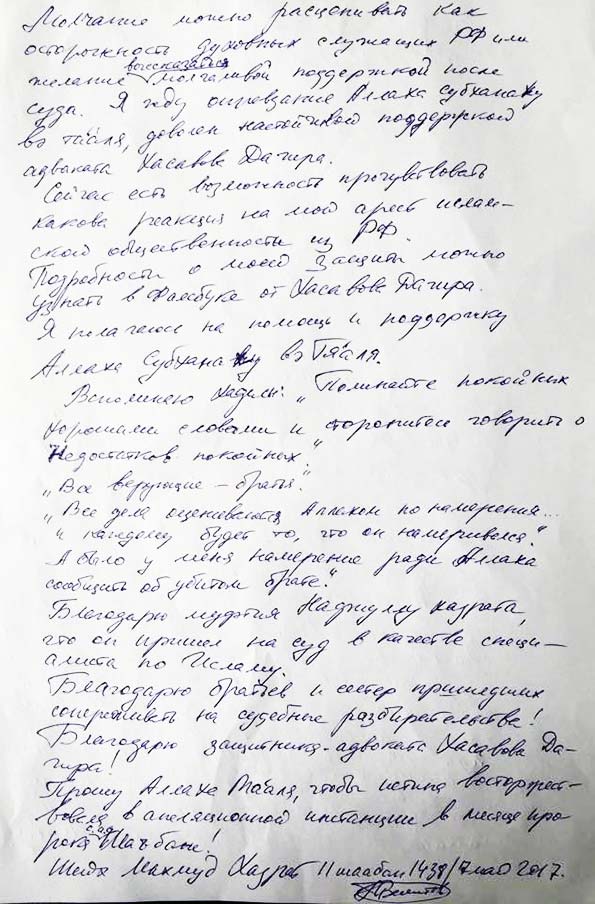 Молчание можно расценивать как
осторожность духовных служащих РФ или
желание высказаться молчаливой поддержкой после
суда. Я жду оправдание Аллаха субханаху
ва та'аля, доволен настойчивой поддержкой
адвоката Хасавова Дагира.
Сейчас есть возможность прочувствовать
какова реакция на мой арест ислам-
ской общественности из РФ.
Подробности о моей защиты можно
узнать в Фейсбуке от Хасавова Дагира.
Я полагаюсь на помощь и поддержку
Аллаха Субханаху ва Та'аля.
Вспоминаю хадисы: „Поминайте покойных
хорошими словами и сторонитесь говорить о
недостатков покойных."
„Все верующие – братья."
„Все дела оцениваются Аллахом по намерения...
и каждому будет то, что он намеривался."
А было у меня намерение ради Аллаха
сообщить об убитом брате."
Благодарю муфтия Наджулу хазрата,
что он пришел на суд в качестве специ-
алиста по Исламу.
Благодарю братьев и сестер пришедших
сопереживать на судебные разбирательства!
Благодарю защитника-адвоката Хасавова Да-
гира!
Прошу Аллаха Та'аля, чтобы истина восторжест-
вовала в апеляционной инстанции в месяце про-
рока с.а.в. Ша'бане!
Шейх Махмуд Хазрат 11 шаабан 1438/7 май 2017.